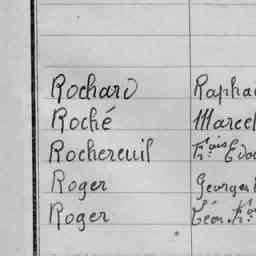 Rochard Rapha
Roché Marcel
Rochereuil Fr.çois Edou
Roger Georges
Roger Léon. Fr.